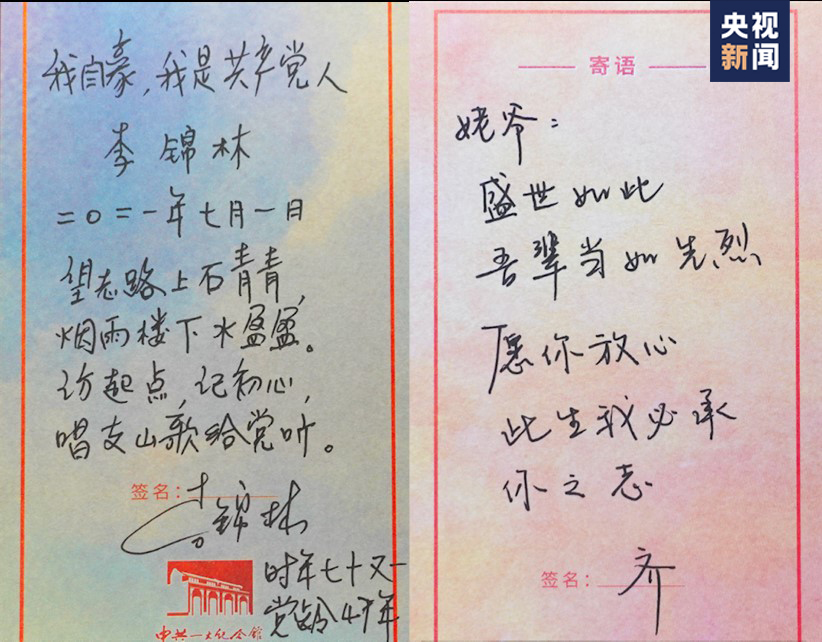 我自豪，我是共产党人
李锦林
二〇二一年七月一日
望志路上石青青，
烟雨楼下水盈盈。
访起点，记初心，
唱支山歌给党听。
签名：李锦林
时年七十又一
党龄47年
中共一大纪念馆
央视
新闻
寄语
姥爷：
盛世如此
吾辈当如先烈
愿你放心
此生我必承
你之志
签名：齐